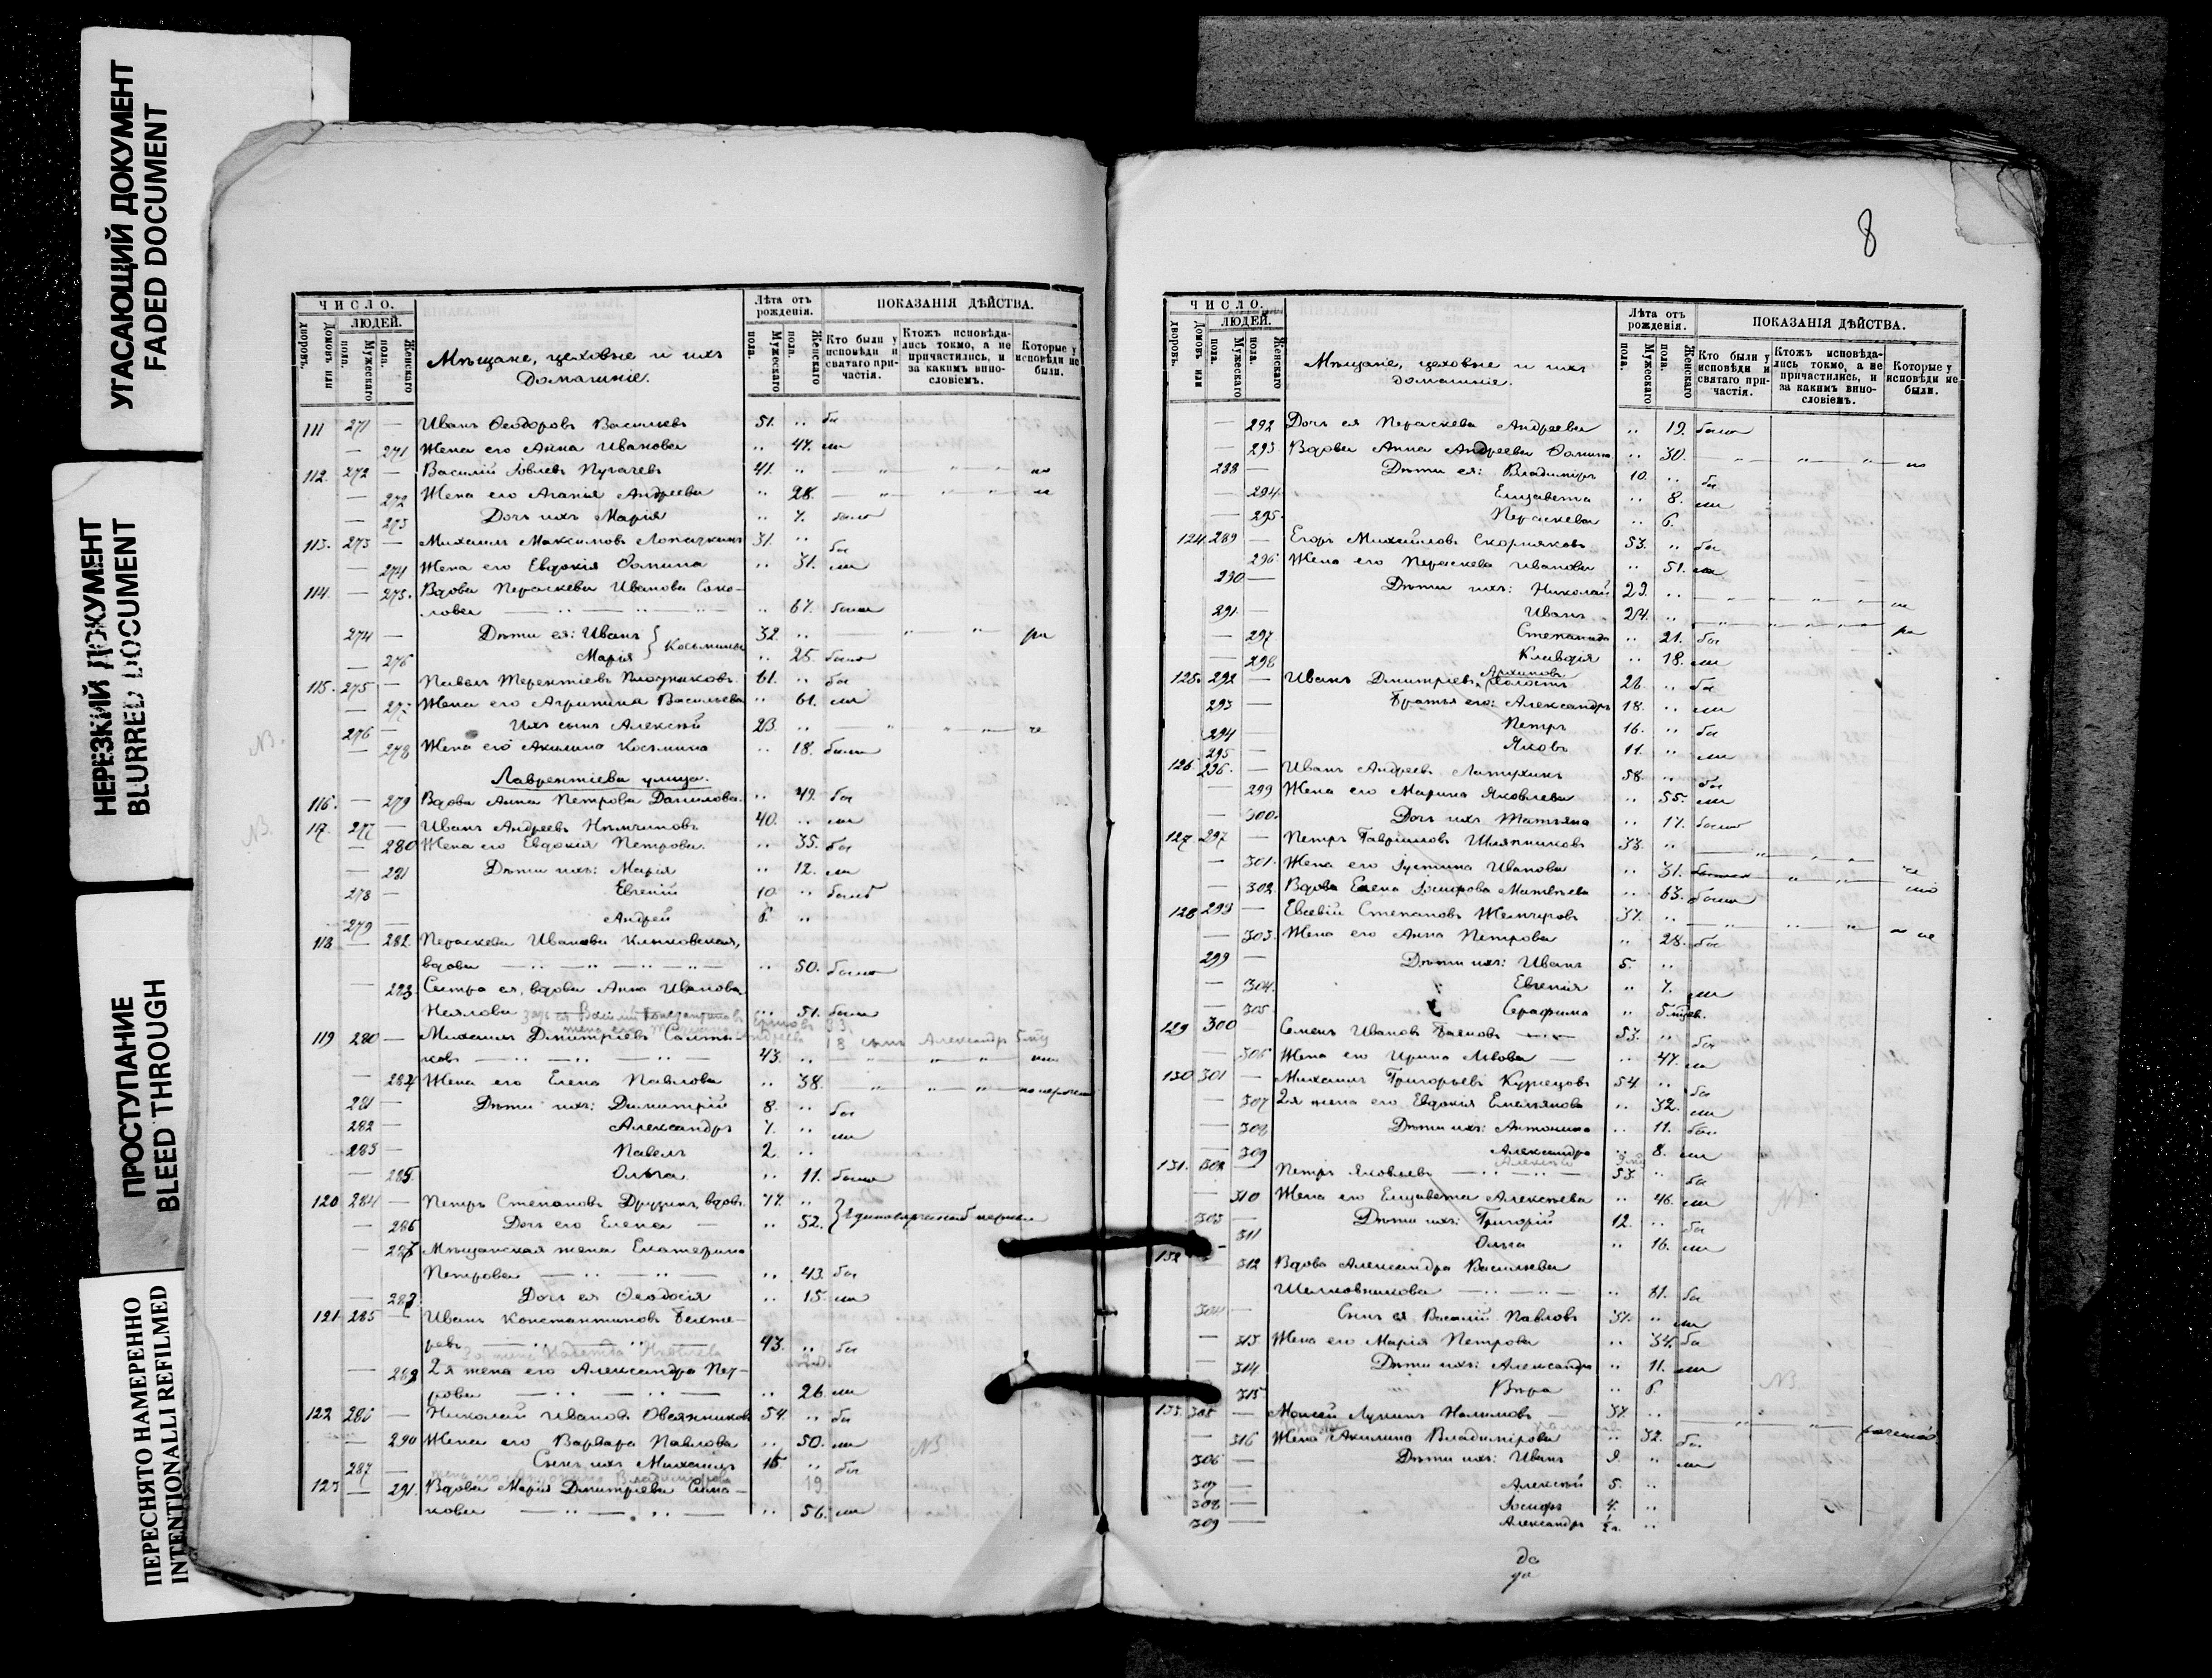 УГАСАЮЩИЙ ДОКУМЕНТ
FADED DOCUMENT
НЕРЕЗКИЙ ДОКУМЕНТ
BLURRED DOCUMENT
ПРОСТУПАНИЕ
BLEED THROUGH
ПЕРЕСНЯТО НАМЕРЕННО
INTENTIONALLI REFILMED
ЧИСЛО.
Домовъ или дворовъ.
ЛЮДЕЙ.
Мужескаго пола.
Женскаго пола.
Мѣщане, цеховые и ихъ
домашніе.
Лѣта отъ рожденія.
Мужескаго пола.
Женскаго пола.
ПОКАЗАНІЯ ДѢЙСТВА.
Кто были у исповѣди и святаго причастія.
Ктожъ исповѣдались токмо, а не причастились, и за какимъ винословіемъ.
Которые у исповѣди не были.
111 271 — Иванъ Ѳеодоровъ Васильевъ 51. „ бы
— 271 Жена его Анна Иванова „ 47. ли
112. 272 — Василій Іовлевъ Пугачевъ 41. „
— 272 Жена его Агапія Андреева „ 28.
— 273 Дочь ихъ Марія „ 7. была
113. 273 — Михаилъ Максимовъ Лопаткинъ 31. „ бы
— 274 Жена его Евдокія Ѳомина „ 31. ли
114. — 275. Вдова Параскева Ивановна Соко-
лова „ 67. была
274 — Дѣти ея: Иванъ } Косьмины 32. „
— 276 Марія „ 25. была
115. 275 — Павелъ Терентіевъ Плотниковъ. 61. „ бы
— 277 Жена его Агрипина Васильева „ 61. ли
276 — Ихъ сынъ Алексѣй 23. „
— 278 Жена его Акилина Косьмина „ 18. была
Лаврентіева улица.
116. — 279 Вдова Анна Петрова Данилова. „ 49. бы
117. 277 — Иванъ Андреевъ Нѣмчиновъ 40. „ ли
— 280 Жена его Евдокія Петрова. „ 35. бы
— 281 Дѣти ихъ: Марія „ 12. ли
278 — Евгеній 10. „ былъ
279 — Андрей 6. „
118 — 282. Параскева Иванова
вдова „ 50. была
— 283. Сестра ея, вдова Анна Иванова
„ 51. была
119 280 — Михаилъ Дмитріевъ Салты-
ковъ 43. „
— 284 Жена его Елена Павлова „ 38.
281 — Дѣти ихъ: Димитрій 8. „ бы
282 — Александръ 7. „ ли
283 — Павелъ 2. „
— 285. Ольга „ 11. была
120 284 — Петръ Степановъ Друзинъ, вдовъ. 77. „
— 286 Дочь его Елена — „ 52.
— 287 Мѣщанская жена Екатерина
Петрова „ 43. бы
— 288 Дочь ея Ѳеодосія „ 15. ли
121. 285 — Иванъ Константиновъ Бехте-
ревъ 43. „ бы
— 289 2я жена его Александра Пет-
рова „ 26. ли
122 286 — Николай Ивановъ Овсянниковъ 54. „ бы
— 290 Жена его Варвара Павлова „ 50. ли NB
287 — Сынъ ихъ Михаилъ 15. „ бы
жена его Антонина Владимірова 19
123 — 291. Вдова Марія Дмитріева
„ 56. ли
8
ЧИСЛО.
Домовъ или дворовъ.
ЛЮДЕЙ.
Мужескаго пола.
Женскаго пола.
Мѣщане, цеховые и ихъ
домашніе.
Лѣта отъ рожденія.
Мужескаго пола.
Женскаго пола.
ПОКАЗАНІЯ ДѢЙСТВА.
Кто были у исповѣди и святаго причастія.
Ктожъ исповѣдались токмо, а не причастились, и за какимъ винословіемъ.
Которые у исповѣди не были.
— 292 Дочь ея Параскева Андреева „ 19. была
— 293 Вдова Анна Андреева Ѳомина „ 30.
288 — Дѣти ея: Владиміръ 10. „ бы
— 294. Елизавета „ 8. ли
— 295. Параскева „ 6.
124. 289 — Егоръ Михайловъ Скорняковъ 53. „ бы
— 296 Жена его Параскева Иванова „ 51. ли
290 — Дѣти ихъ: Николай 29. „
291 — Иванъ 24. „
— 297 Степанида „ 21. бы
— 298 Клавдія „ 18. ли
125. 292 — Иванъ Дмитріевъ Архиповъ холостъ 26. „ бы
293 — Братья его: Александръ 18. „ ли
294 — Петръ 16. „ бы
295 — Яковъ 11. „ ли
126 296. — Иванъ Андреевъ Латухинъ 58. „ бы
— 299 Жена его Марина Яковлева „ 55. ли
— 300. Дочь ихъ Татьяна „ 17. была
127. 297 — Петръ Гавріиловъ Шляпниковъ 33. „
— 301. Жена его Іустина Иванова „ 31.
— 302. Вдова Елена Іосифова Матвѣева „ 63. была
128 298 — Евсевій Степановъ Жемчуговъ 37. „
— 303. Жена его Анна Петрова „ 28. бы
299 — Дѣти ихъ: Иванъ 5. „
— 304. Евгенія „ 7. ли
— 305. Серафима „ 5 мѣс.
129 300 — Семенъ Ивановъ Баяновъ 53. „ бы
— 306 Жена его Ирина Львова — „ 47. ли
130 301 — Михаилъ Григорьевъ Кузнецовъ 54. „ бы
— 307 2я жена его Евдокія Емельянова „ 32. ли
— 308 Дѣти ихъ: Антонина „ 11. бы
— 309 Александра „ 8. ли
131. 302 — Петръ Яковлевъ 53. „ бы
— 310 Жена его Елизавета Алексѣева „ 46. ли
303 — Дѣти ихъ: Григорій 12. „ бы
— 311 Ольга „ 16. ли
132 — 312 Вдова Александра Васильева
Шелковникова „ 81. бы
304 — Сынъ ея Василій Павловъ 37. „ ли
— 313 Жена его Марія Петрова „ 34. бы
— 314 Дѣти ихъ: Александра „ 11. ли
— 315 Вѣра „ 6. NB
133. 305 — Моисей Лукинъ Налимовъ 37. „
— 316 Жена Акилина Владимірова „ 32. бы
306 — Дѣти ихъ: Иванъ 9. „ ли
307 — Алексѣй 5. „
308 — Іосифъ 4. „
309 — Александръ ½ г. „